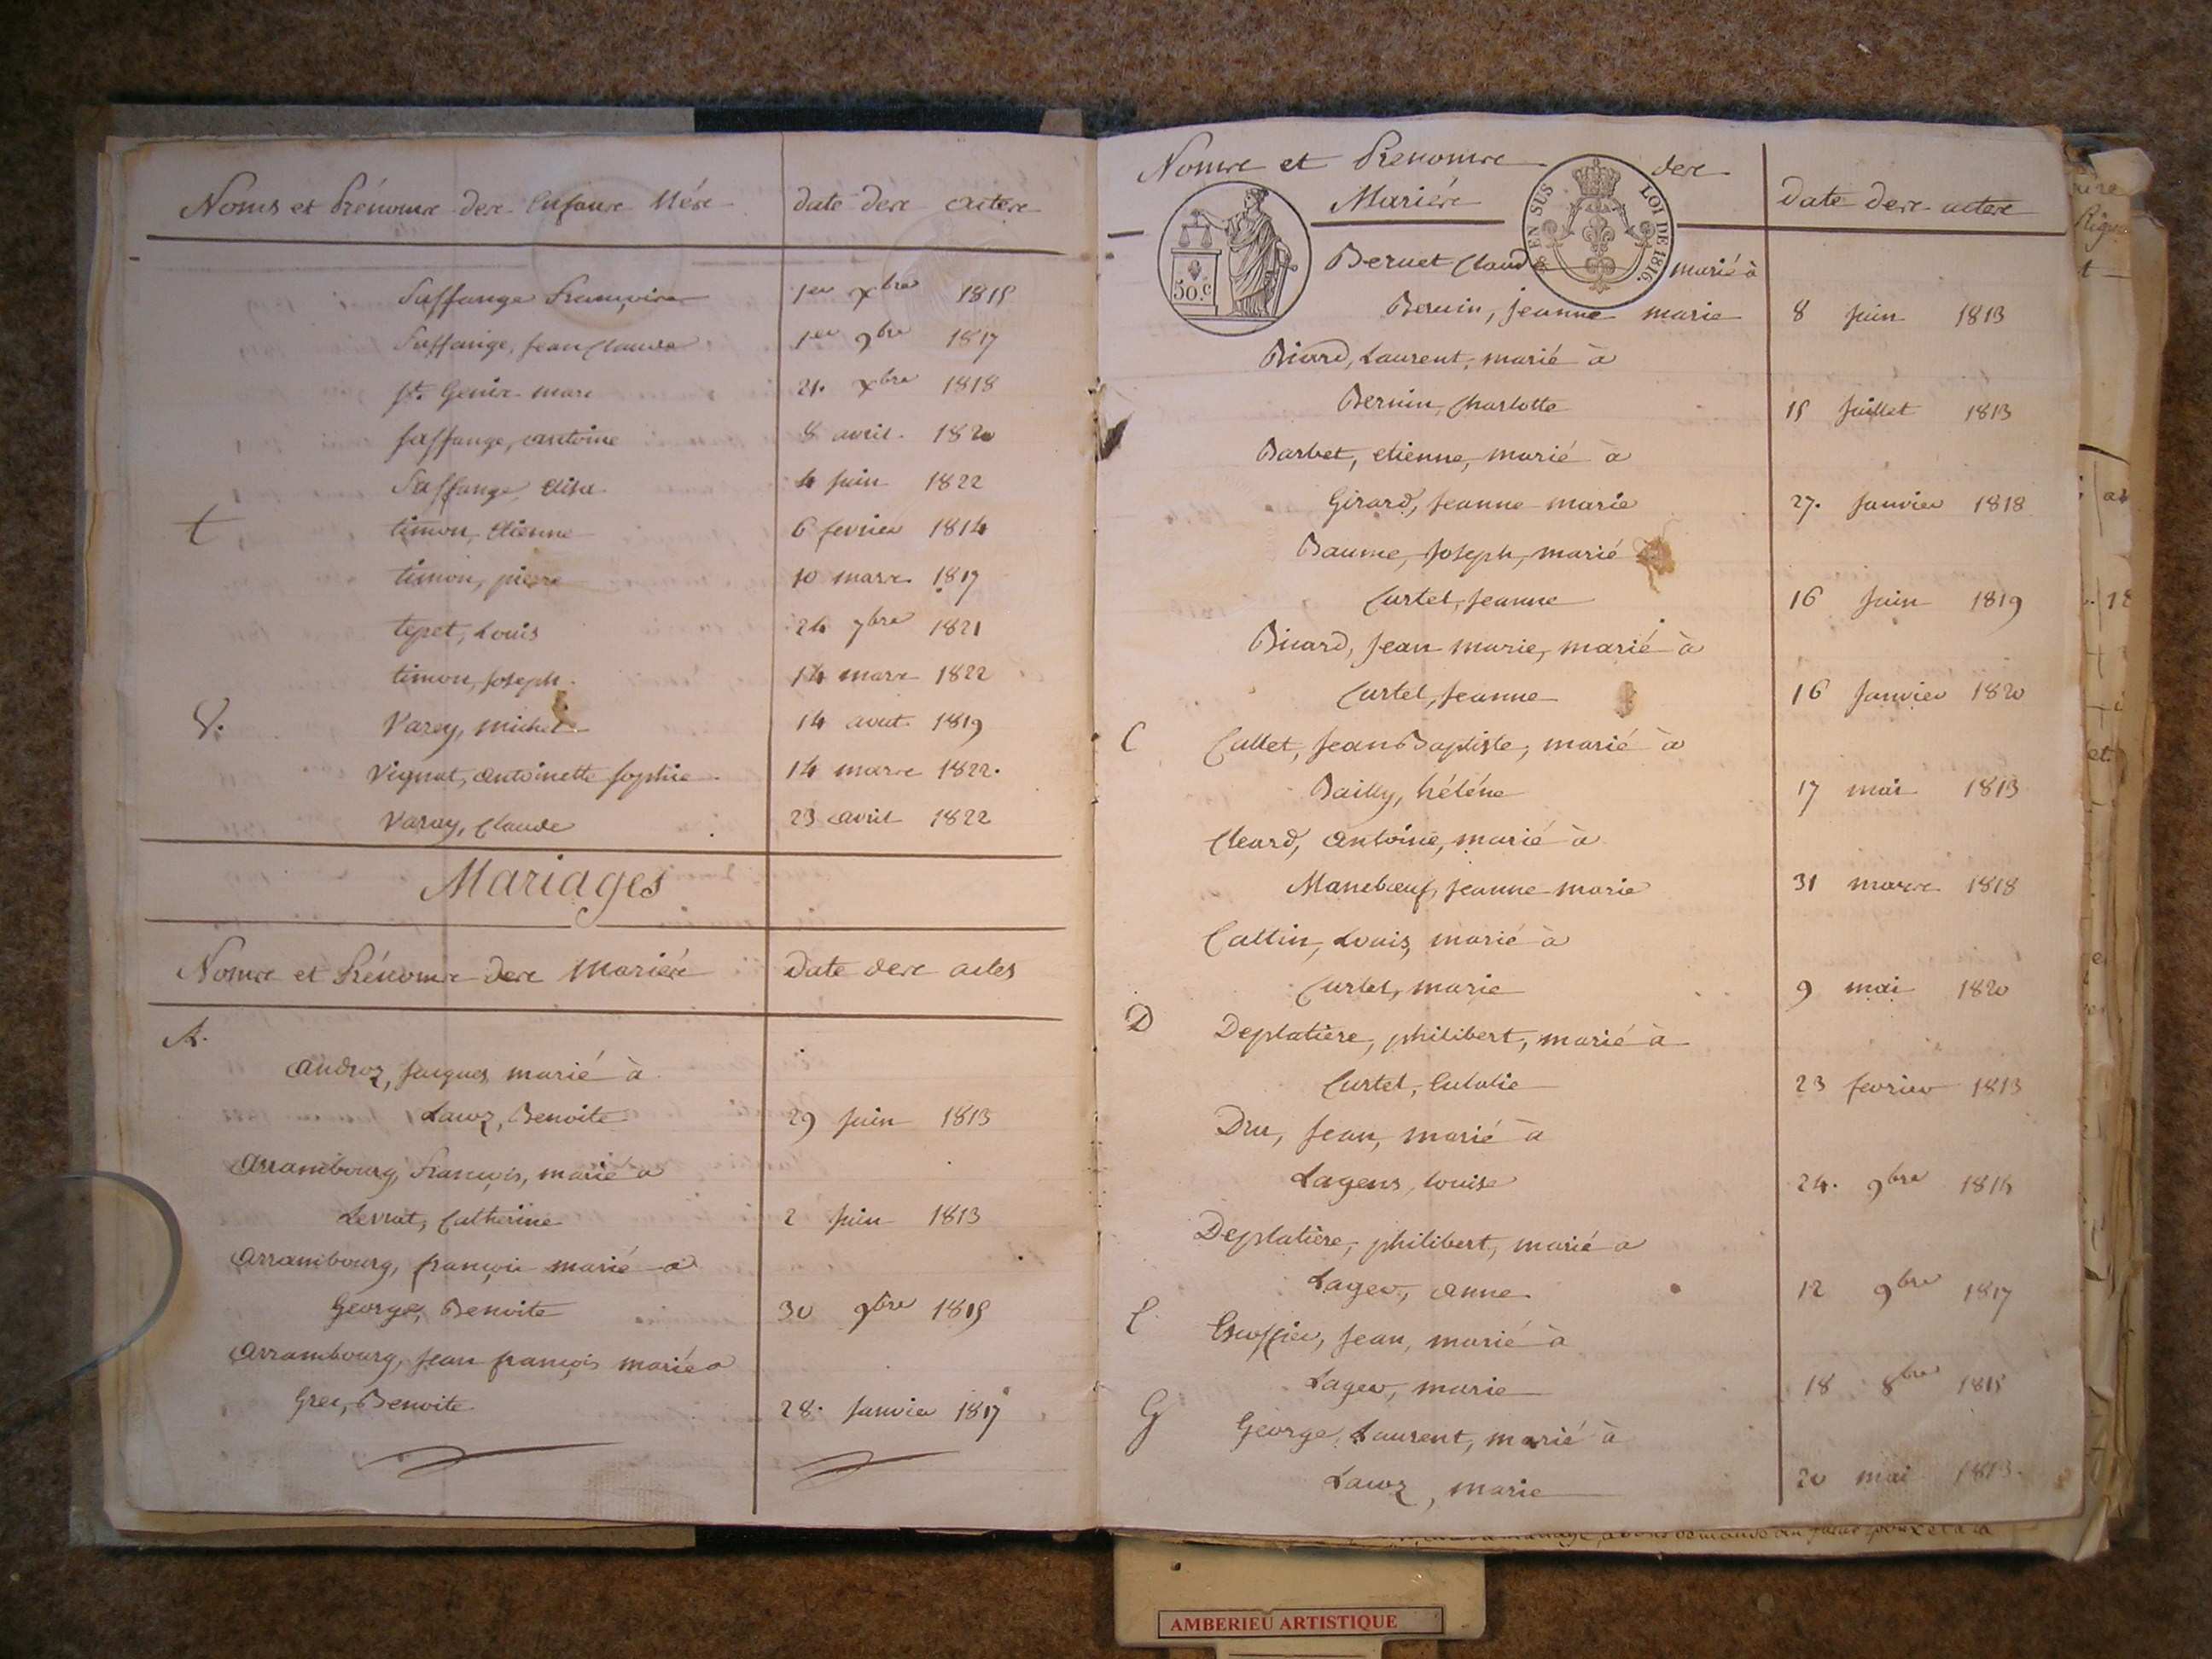 Noms et Prénoms des Enfans Nés
date des actes
Saffange Françoise 1er xbre 1815
Saffange, Jean Claude 1er 9bre 1817
St. Genis marc 21. xbre 1818
Saffange, antoine 8 avril. 1820
Saffange, elisa. 4 juin 1822
t timon, etienne 6 fevrier 1814
timon, pierre 10 mars 1817
tepet, Louis 24 7bre 1821
timon, Joseph. 14 mars 1822
V. Varey, michel 14 aout 1819
Vignat, antoinette Sophie. 14 mars 1822.
Varey, Claude 23 avril 1822
Mariages
Noms et Prénoms des Mariés
Date des actes
A.
androz, Jacques marié à
Lawz, Benoite 29 Juin 1813
arrambourg, François, marié a
Levrat, Catherine 2 Juin 1813
arrambourg, françois marié a
George, Benoite 30 9bre 1815
arrambourg, jean françois marié a
Grec, Benoite. 28. Janvier 1817
Noms et Prenoms des
Mariés
Date des actes
50.c
EN SUS LOI DE 1816.
Bernet Claude marié à
Bernin, jeanne marie 8 Juin 1813
Bicard, Laurent, marié à
Bernin, Charlotte 15 Juillet 1813
Barbet, etienne, marié à
Girard, Jeanne marie 27. Janvier 1818
Baume, Joseph, marié
Curtet, Jeanne 16 Juin 1819
Bicard, Jean marie, marié à
Curtet, Jeanne 16 Janvier 1820
C Callet, Jean Baptiste, marié à
Bailly, hélène 17 mai 1813
Cleard, antoine, marié à
Maneboeuf, jeanne marie 31 mars 1818
Cattin, Louis, marié à
Curtet, marie 9 mai 1820
D Deplatière, philibert, marié à
Curtet, Eulalie 23 fevrier 1813
Dru, Jean, marié à
Lagens, louise 24. 9bre 1814
Deplatière, philibert, marié a
Lager, anne. 12 9bre 1817
E Escoffier, Jean, marié à
Lager, marie 18 8bre 1815
G George, Laurent, marié à
Lawz, marie 20 mai 1813.
AMBERIEU ARTISTIQUE